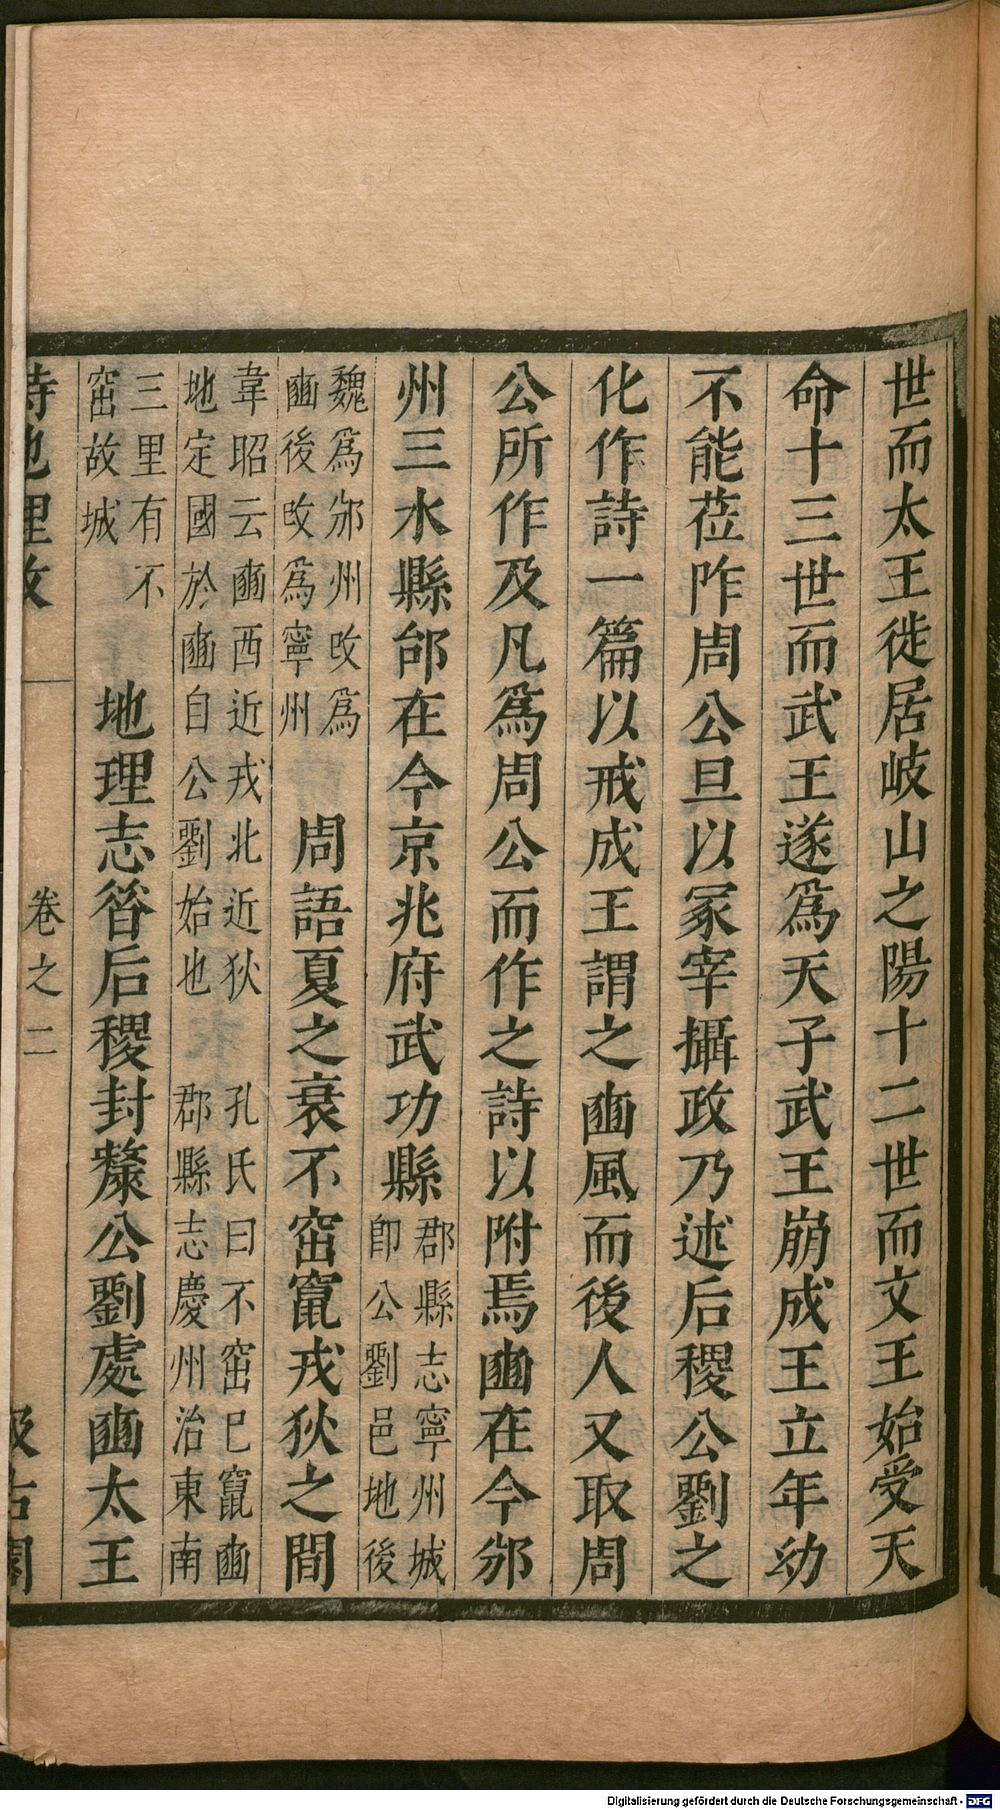 世而太王徙居岐山之陽十二世而文王始受天
命十三世而武王遂爲天子武王崩成王立年幼
不能莅阼周公旦以冢宰攝政乃述后稷公劉之
化作詩一篇以戒成王謂之豳風而後人又取周
公所作及凡爲周公而作之詩以附焉豳在今邠
州三水縣邰在今京兆府武功縣 郡縣志寧州城
即公劉邑地後
魏爲邠州攺爲
豳後攺爲寧州 周語夏之衰不窋竄戎狄之間
韋昭云豳西近戎北近狄
地定國於豳自公劉始也 孔氏曰不窋已竄豳
郡縣志慶州治東南
三里有不
窋故城 地理志昝后稷封斄公劉處豳太王
詩地理攷 卷之二 汲古閣
Digitalisierung gefördert durch die Deutsche Forschungsgemeinschaft - DFG